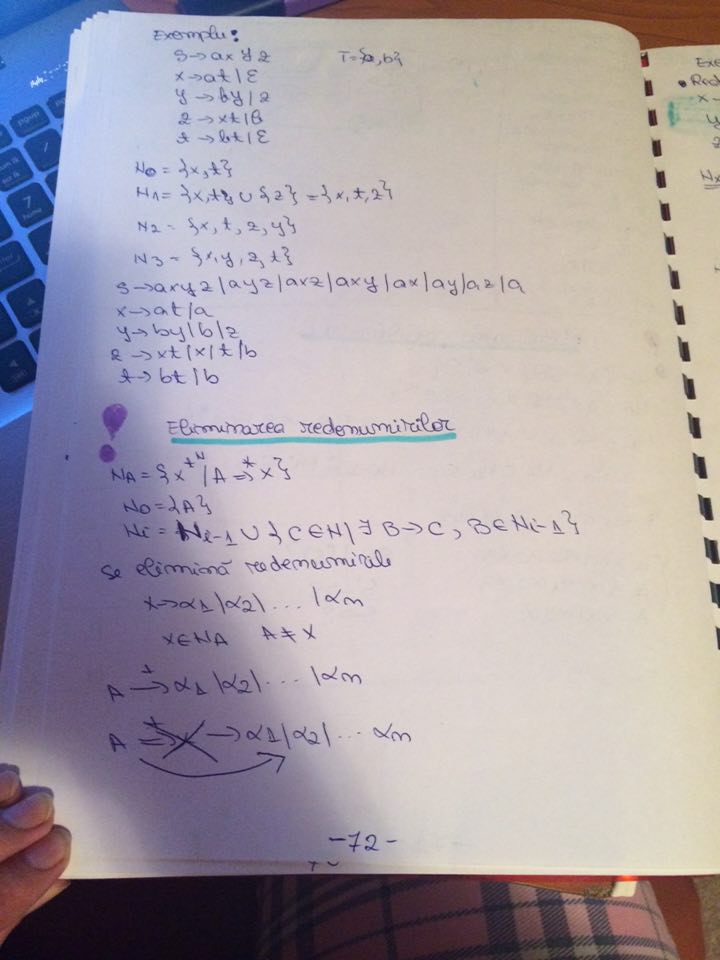 Exemplu:
S→axyz T={a,b}
x→at|ε
y→by|z
z→xt|b
t→bt|ε
N0={x,t}
N1={x,t} ∪ {z} = {x,t,z}
N2= {x, t, z, y}
N3 = {x,y,z,t}
S→axyz|ayz|axz|axy|ax|ay|az|a
x→at|a
y→by|b|z
z→xt|x|t|b
t→bt|b
! Eliminarea redenumirilor
NA={x∈N|A ⇒* x}
N0={A}
Ni = Ni-1 ∪ {C∈N|∃ B→C, B∈Ni-1}
se elimină redenumirile
x→α1|α2| ... |αn
x∈NA A≠X
A →+ α1|α2| ... |αn
A ⇒+ x →α1|α2| ... αn
-72-
Exe
Red
x→
y
z
Nx